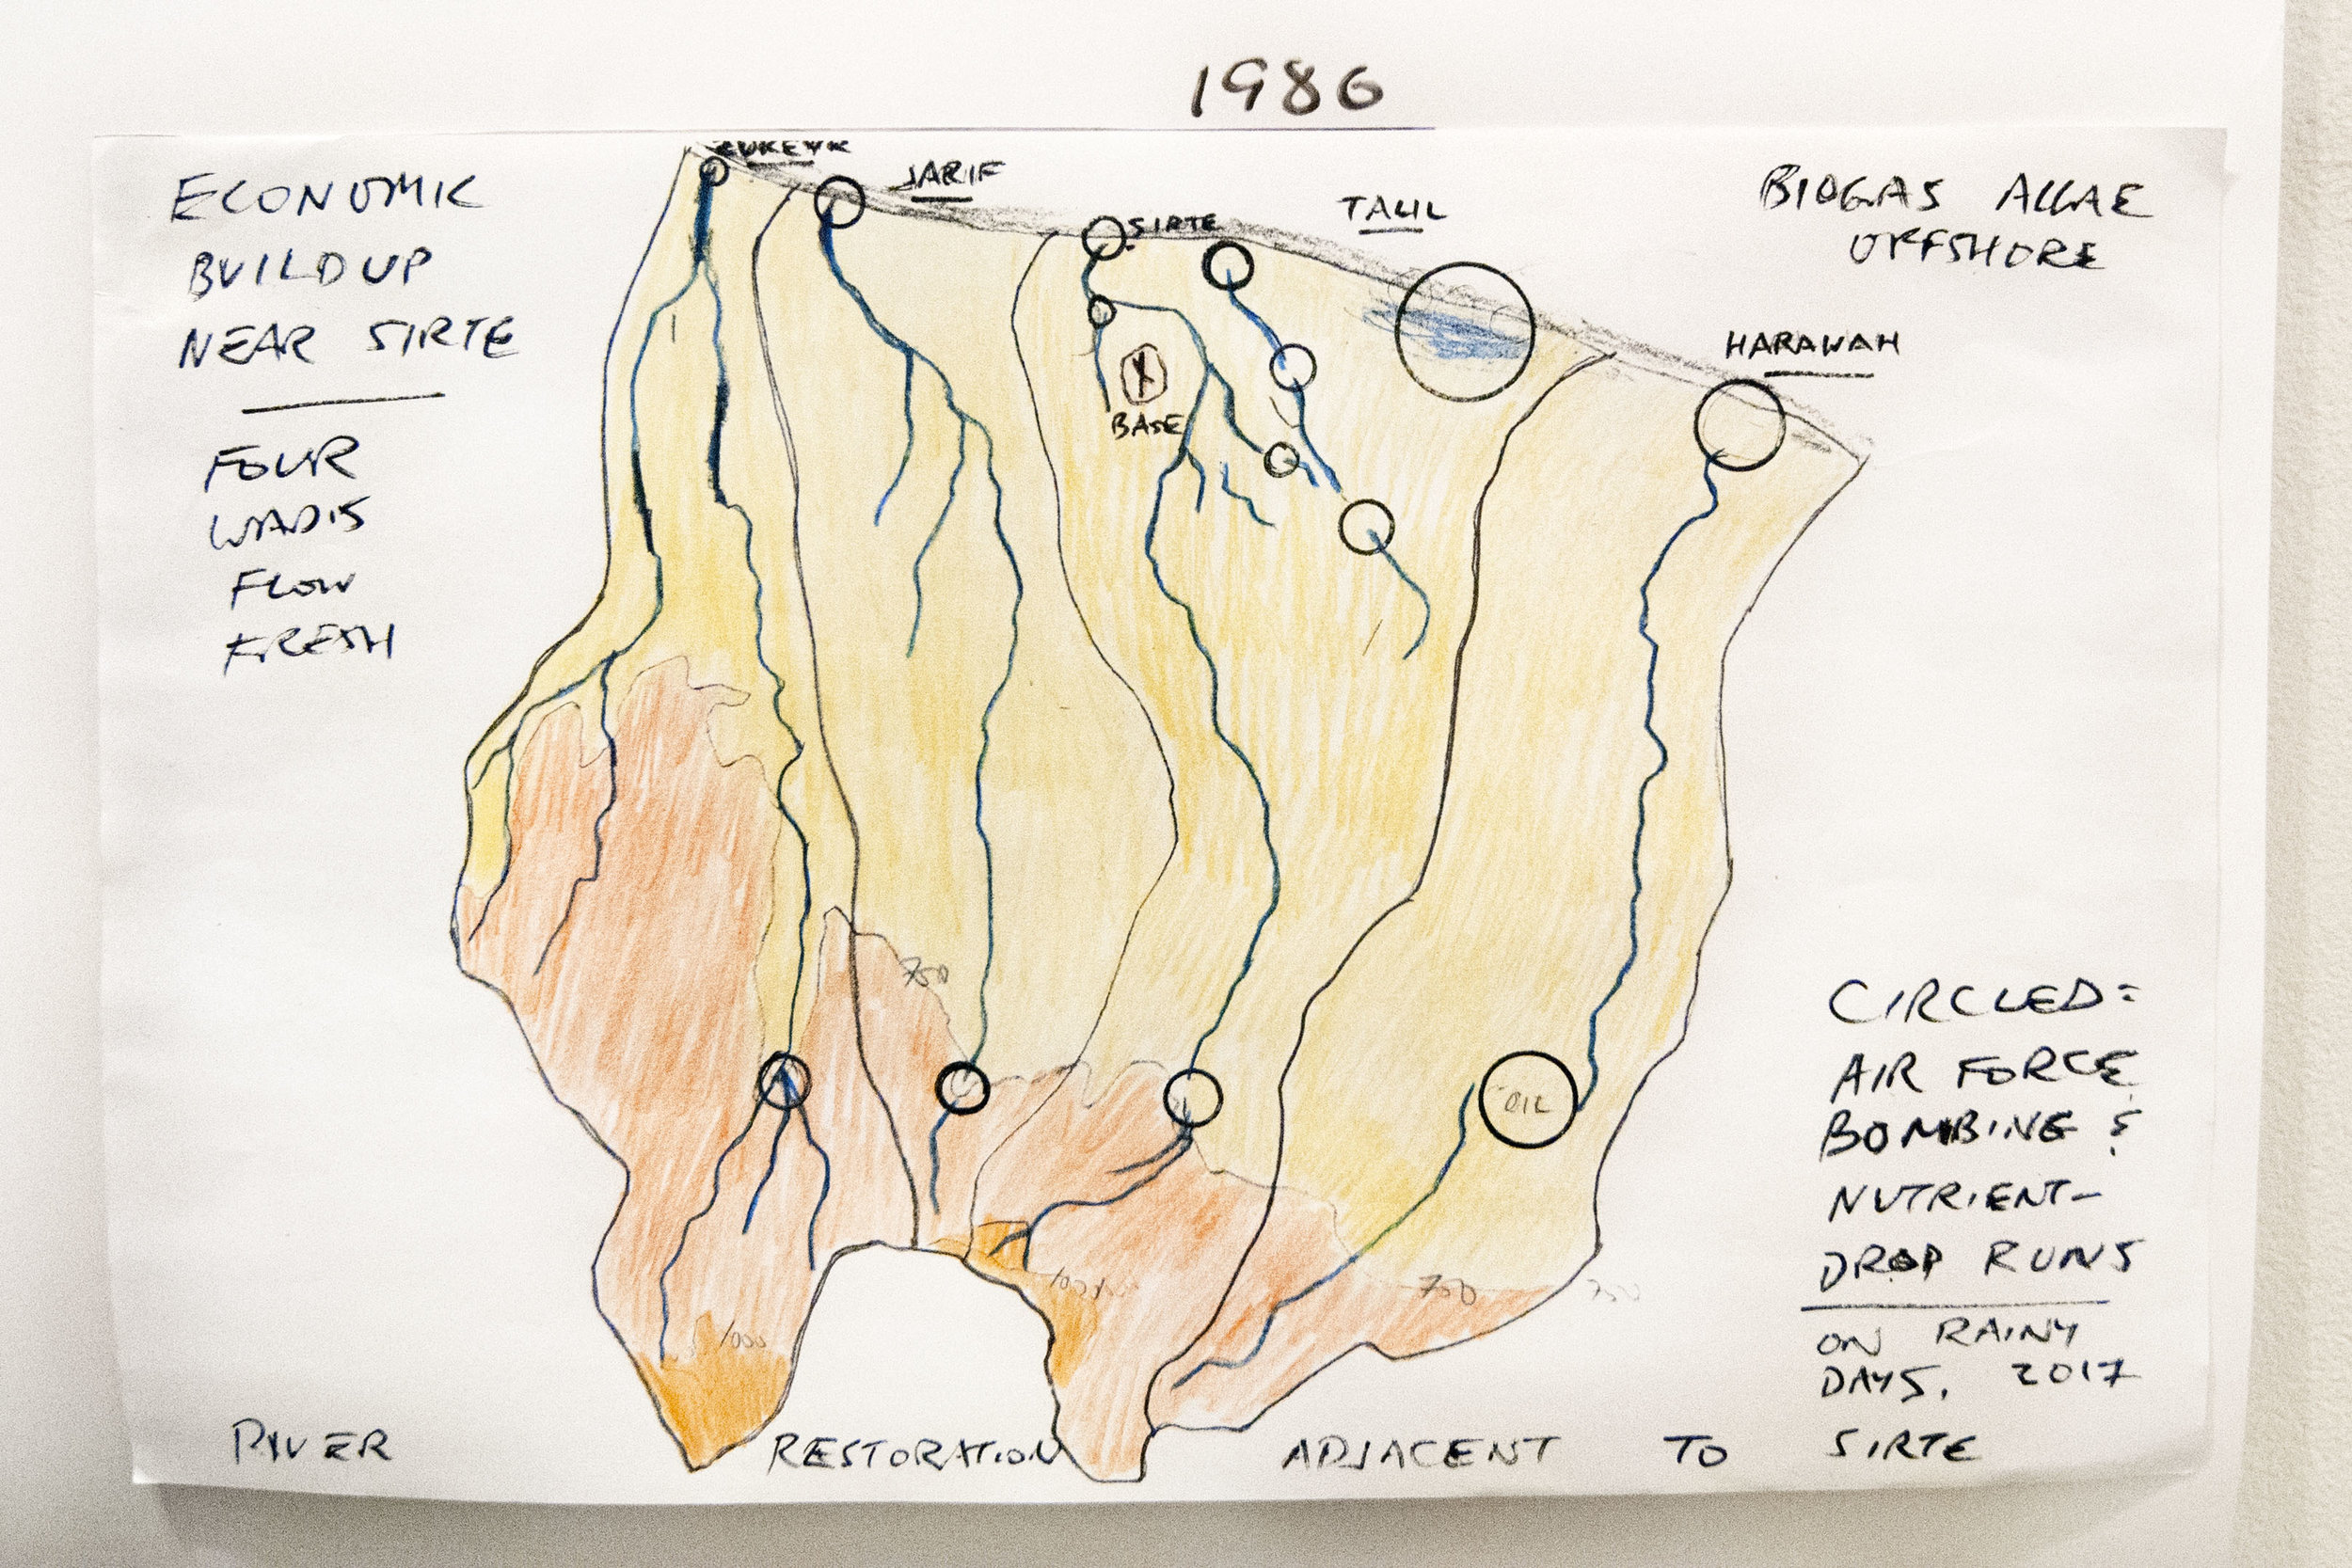 1986
ECONOMIC
BUILDUP
NEAR SIRTE
FOUR
WADIS
FLOW
FRESH
JARIF
SIRTE
TALIL
BIOGAS ALGAE
OFFSHORE
HARAWAH
BASE
750
OIL
1000
750
750
1000
CIRCLED=
AIR FORCE
BOMBING &
NUTRIENT-
DROP RUNS
ON RAINY
DAYS, 2017
RIVER RESTORATION ADJACENT TO SIRTE